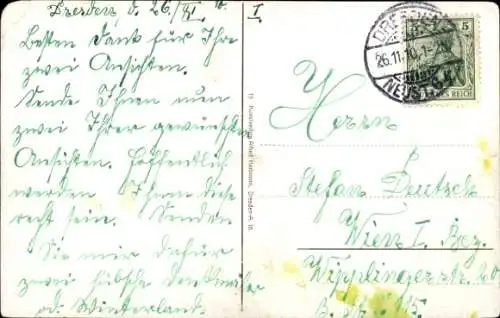 Dresden d. 26./XI 10.
I
Besten Dank für Ihre
zwei Ansichten.
Sende Ihnen nun
zwei Ihrer gewünschten
Ansichten. Hoffentlich
werden Ihnen diese
recht sein. Senden
Sie mir dafür
zwei hübsche Denkmäler
od. Winterland.
Dresden-A. 16.
DRESDEN
26.11.10. 1-2
NEUST.
5
REICH
Herrn
Stefan Deutsch
Wien I. Bez.
Wipplingerstr.